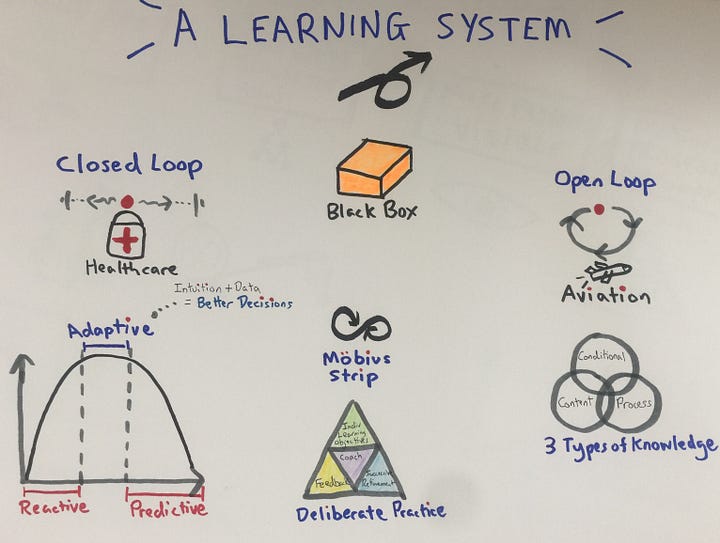 A LEARNING SYSTEM
Closed Loop
Healthcare
Black Box
Open Loop
Aviation
Intuition + Data
= Better Decisions
Adaptive
Reactive
Predictive
Möbius
Strip
Indiv
Learning
Objectives
Coach
Feedback
Successive
Refinement
Deliberate Practice
Conditional
Content
Process
3 Types of Knowledge